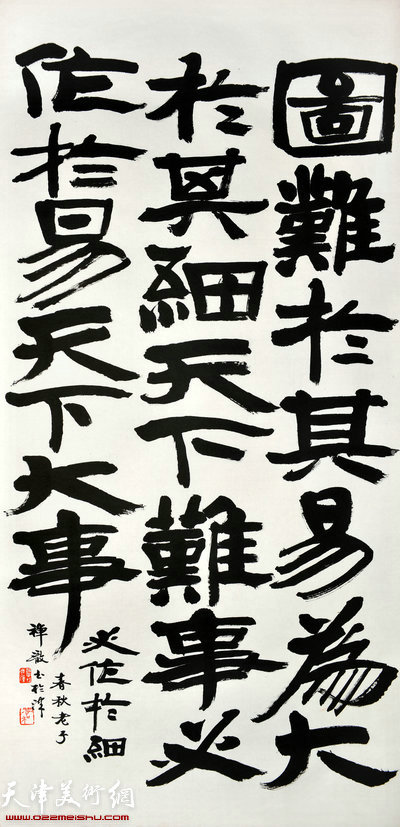 圖難於其易為大
於其細天下難事必
作於易天下大事
必作於細
春秋老子
禪敼書於津
天津美術網
www.022meishu.com